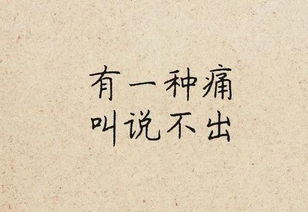 有一种痛
叫说不出